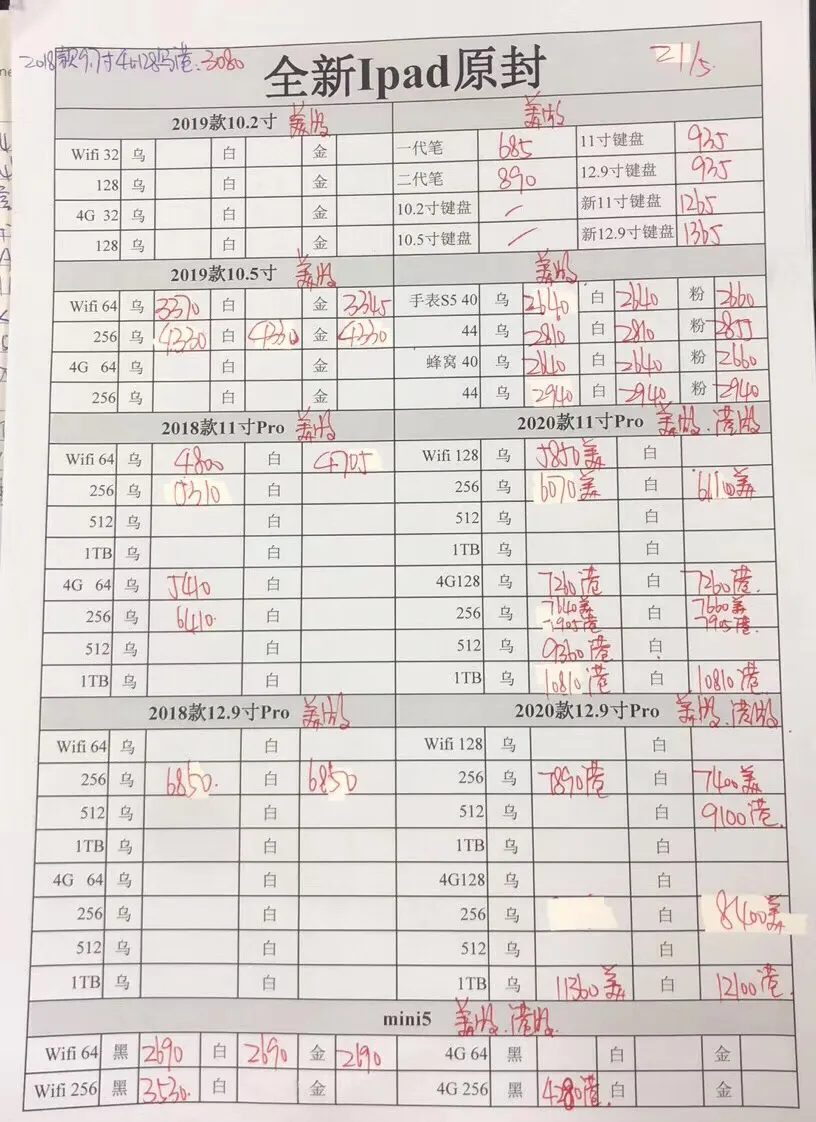 2018款9.7寸4G128乌港:3080
全新Ipad原封 21/5.
2019款10.2寸 美版
Wifi 32 乌 白 金
128 乌 白 金
4G 32 乌 白 金
128 乌 白 金
美版
一代笔 685 11寸键盘 935
二代笔 890 12.9寸键盘 935
10.2寸键盘 / 新11寸键盘 1265
10.5寸键盘 / 新12.9寸键盘 1365
2019款10.5寸 美版
Wifi 64 乌 3370 白 金 3345
256 乌 4330 白 4330 金 4330
4G 64 乌 白 金
256 乌 白 金
美版
手表S5 40 乌 2640 白 2640 粉 2660
44 乌 2810 白 2810 粉 2855
蜂窝 40 乌 2640 白 2640 粉 2660
44 乌 2940 白 2940 粉 2940
2018款11寸Pro 美版
Wifi 64 乌 4800 白 4705
256 乌 5310 白
512 乌 白
1TB 乌 白
4G 64 乌 5410 白
256 乌 6410. 白
512 乌 白
1TB 乌 白
2020款11寸Pro 美版.港版
Wifi 128 乌 5850美 白
256 乌 6070美 白 6110美
512 乌 白
1TB 乌 白
4G128 乌 7260港 白 7260港.
256 乌 7640美 白 7660美
7905港 7905港.
512 乌 9360港 白
1TB 乌 10810港 白 10810港
2018款12.9寸Pro 美版
Wifi 64 乌 白
256 乌 6850. 白 6850
512 乌 白
1TB 乌 白
4G 64 乌 白
256 乌 白
512 乌 白
1TB 乌 白
2020款12.9寸Pro 美版.港版
Wifi 128 乌 白
256 乌 7890港 白 7400美
512 乌 白 9100港.
1TB 乌 白
4G128 乌 白
256 乌 白 8400美
512 乌 白
1TB 乌 11360美 白 12100港.
mini5 美版.港版.
Wifi 64 黑 2690 白 2690 金 2690 4G 64 黑 白 金
Wifi 256 黑 3530. 白 金 4G 256 黑 4280港. 白 金